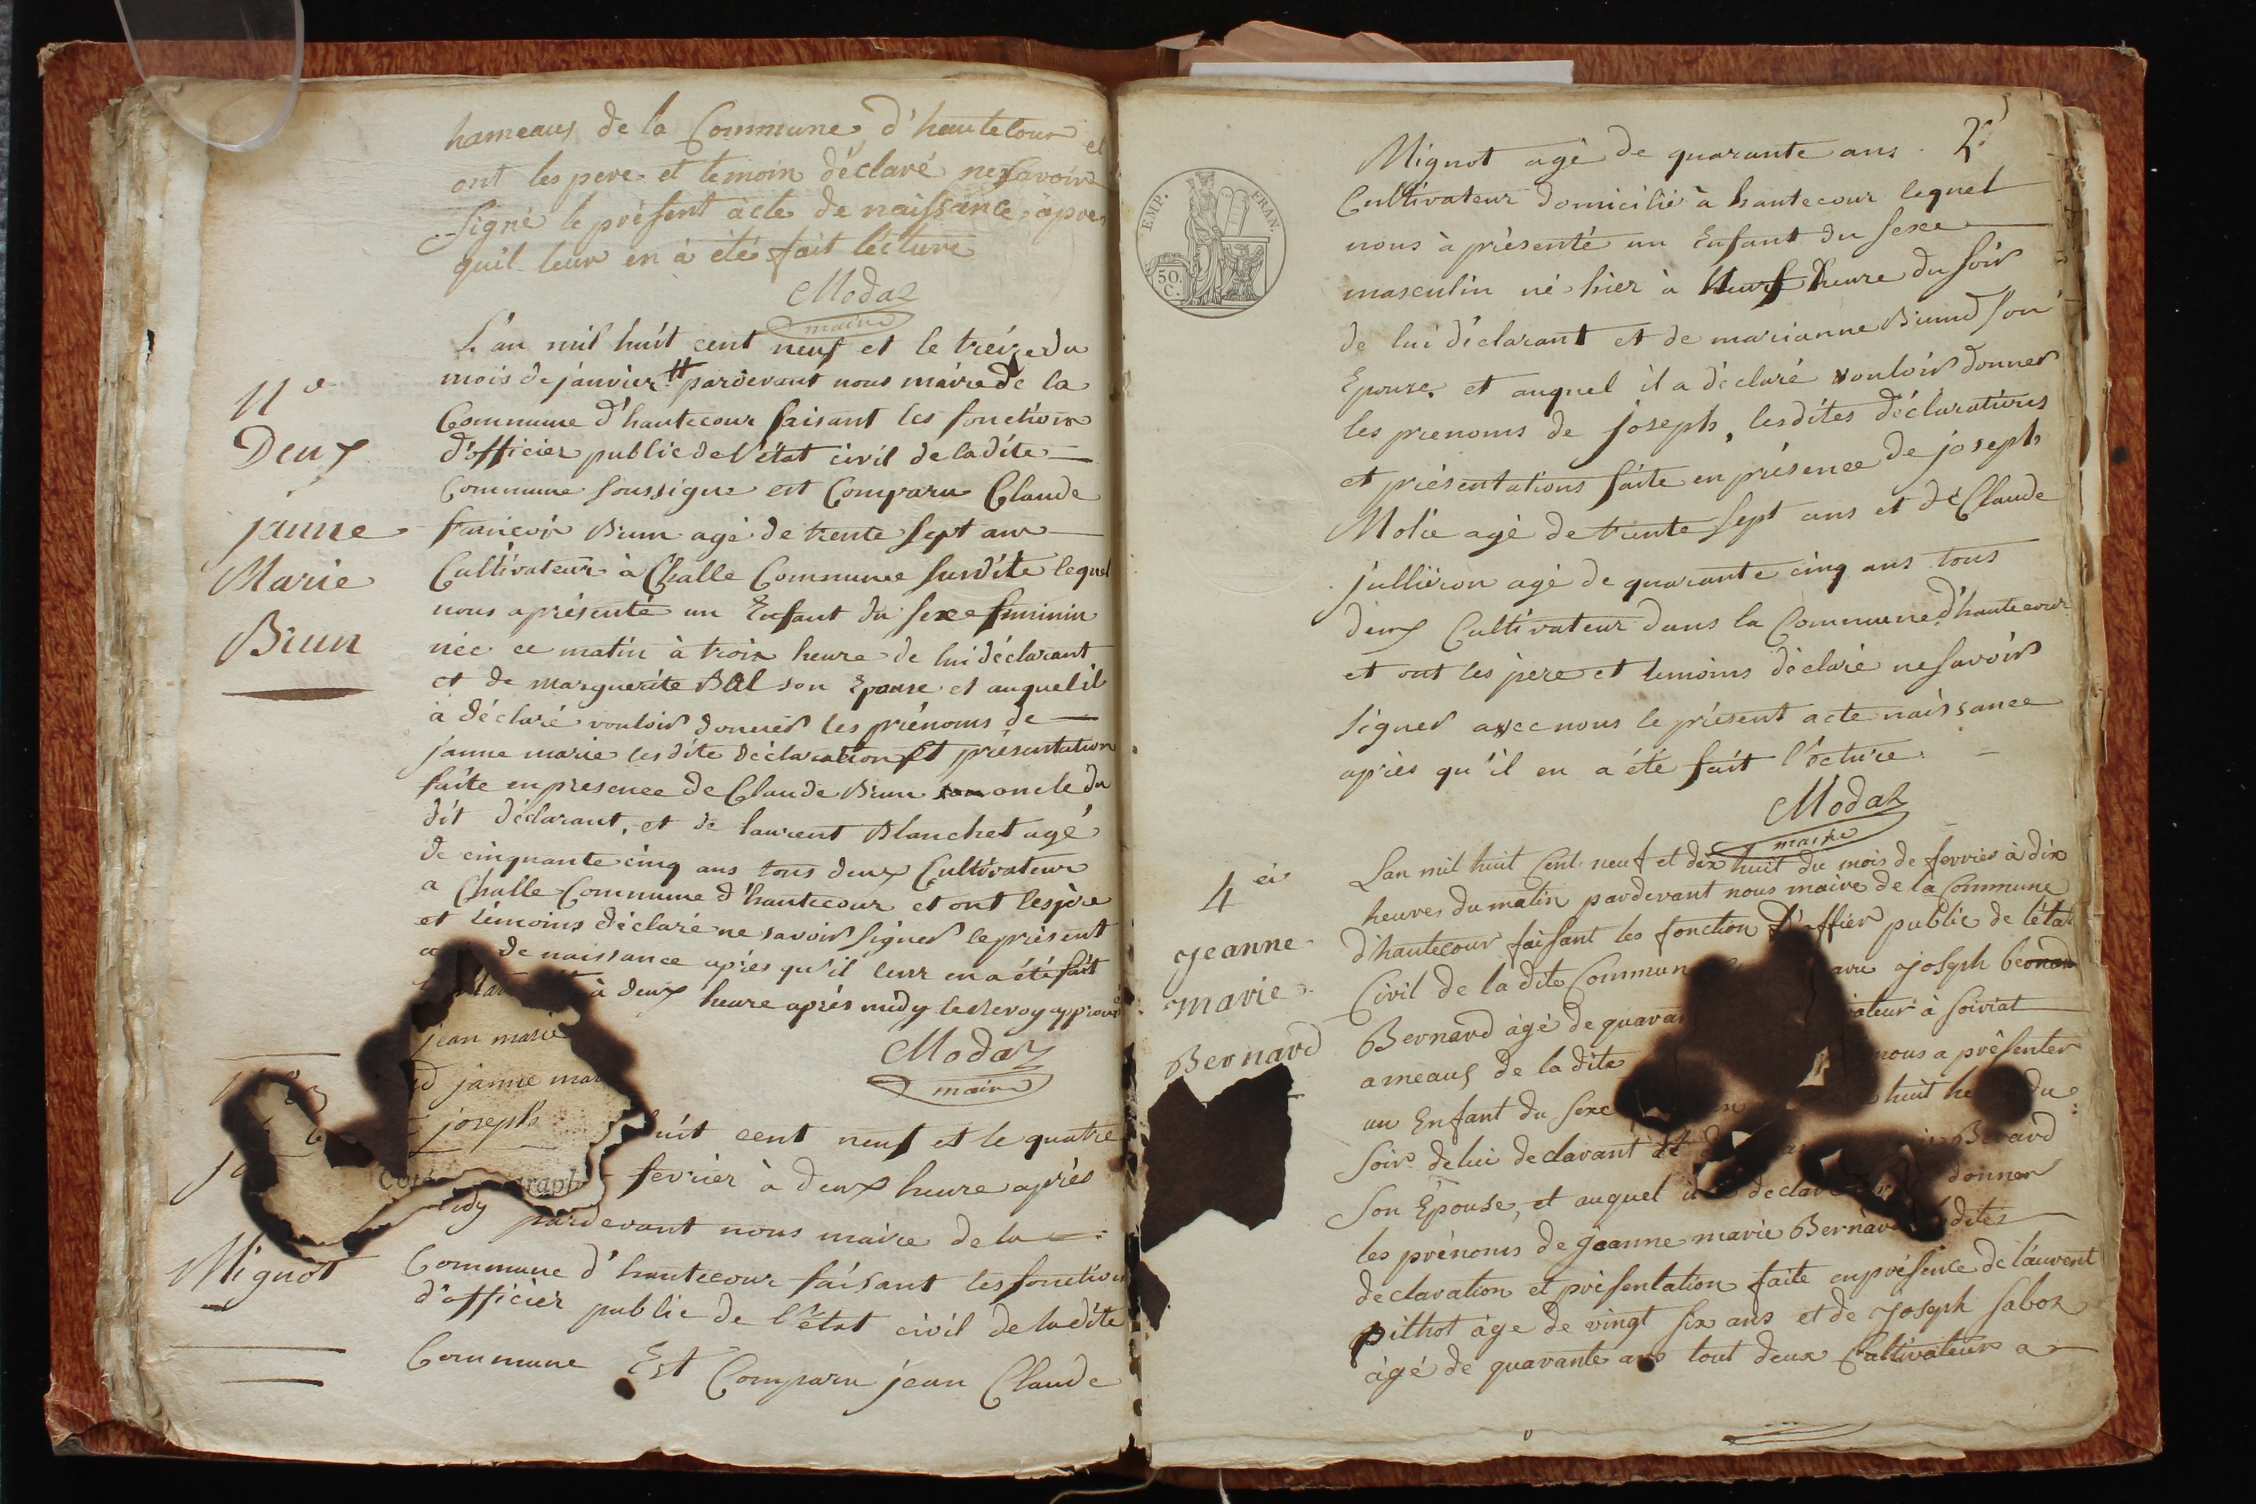 hameaux de la Commune d'hautecour et
ont les pere et temoin déclaré ne savoir
signé le présent acte de naissance après
quil leur en à été fait lécture
Modaz
maire
N°
Deux
janne
Marie
Brun
L'an mil huit cent neuf et le treize du
mois de janvier # pardevant nous maire de la
Commune d'hautecour faisant les fonctions
d'officier public de l'état civil de ladite
Commune soussigne est Comparu Claude
françois Brun agé de trente sept ans
Cultivateur à Challe Commune susdite lequel
nous a présenté un Enfant du sexe feminin
née ce matin à trois heure de lui déclarant
et de marguerite Bal son Epouse et auquel il
à déclaré vouloir donner les prénoms de
janne marie lesdite déclaration et présentation
faite en presence de Claude Brun oncle du
dit déclarant, et de laurent Blanchet agé
de cinquante cinq ans tous deux Cultivateur
a Challe Commune d'hautecour et ont les père
et témoins déclaré ne savoir signer le présent
de naissance après qu'il leur en a été fait
à deux heure après midy le renvoy approuvé
Modaz
maire
jean marie
janne
joseph
Mignot
huit cent neuf et le quatre
fevrier à deux heure après
pardevant nous maire de la
Commune d'hautecour faisant les fonctions
d'officier public de l'état civil de ladite
Commune Est Comparu jean Claude
EMP. FRAN.
50 C.
2
Mignot agé de quarante ans
Cultivateur domicilié à hautecour lequel
nous à présenté un Enfant du sexe
masculin né hier à Neuf heure du soir
de lui déclarant et de marianne son
Epouse, et auquel il a déclaré vouloir donner
les prenoms de joseph, lesdites déclarations
et présentations faite en présence de joseph
Molie agé de trente sept ans et de Claude
jullieron agé de quarante cinq ans tous
deux Cultivateur dans la Commune d'hautecour
et ont les père et temoins déclaré ne savoir
signer avec nous le présent acte naissance
après qu'il en a été fait l'écture
Modaz
maire
4
jeanne
marie
Bernard
Lan mil huit Cent neuf et dix huit du mois de fevrier à dix
heures du matin pardevant nous maire de la Commune
d'hautecour faisant les fonction d'offier public de létat
Civil de la dite Commun joseph
Bernard àgé de à soiriat
ameaux de la dite nous a présenter
un Enfant du sexe huit du
soir de lui declarant
son Epouse, et auquel donner
les prénoms de jeanne marie
declaration et présentation faite en présence de laurent
pithot àge de vingt six ans et de joseph sabor
àgé de quarante ans tout deux Cultivateur a